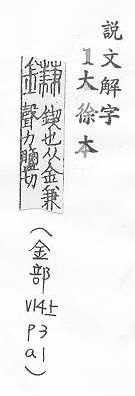 説文解字
1大徐本
鎌 鍥也从金兼
聲力鹽切
(金部 V14上 P3 a1)